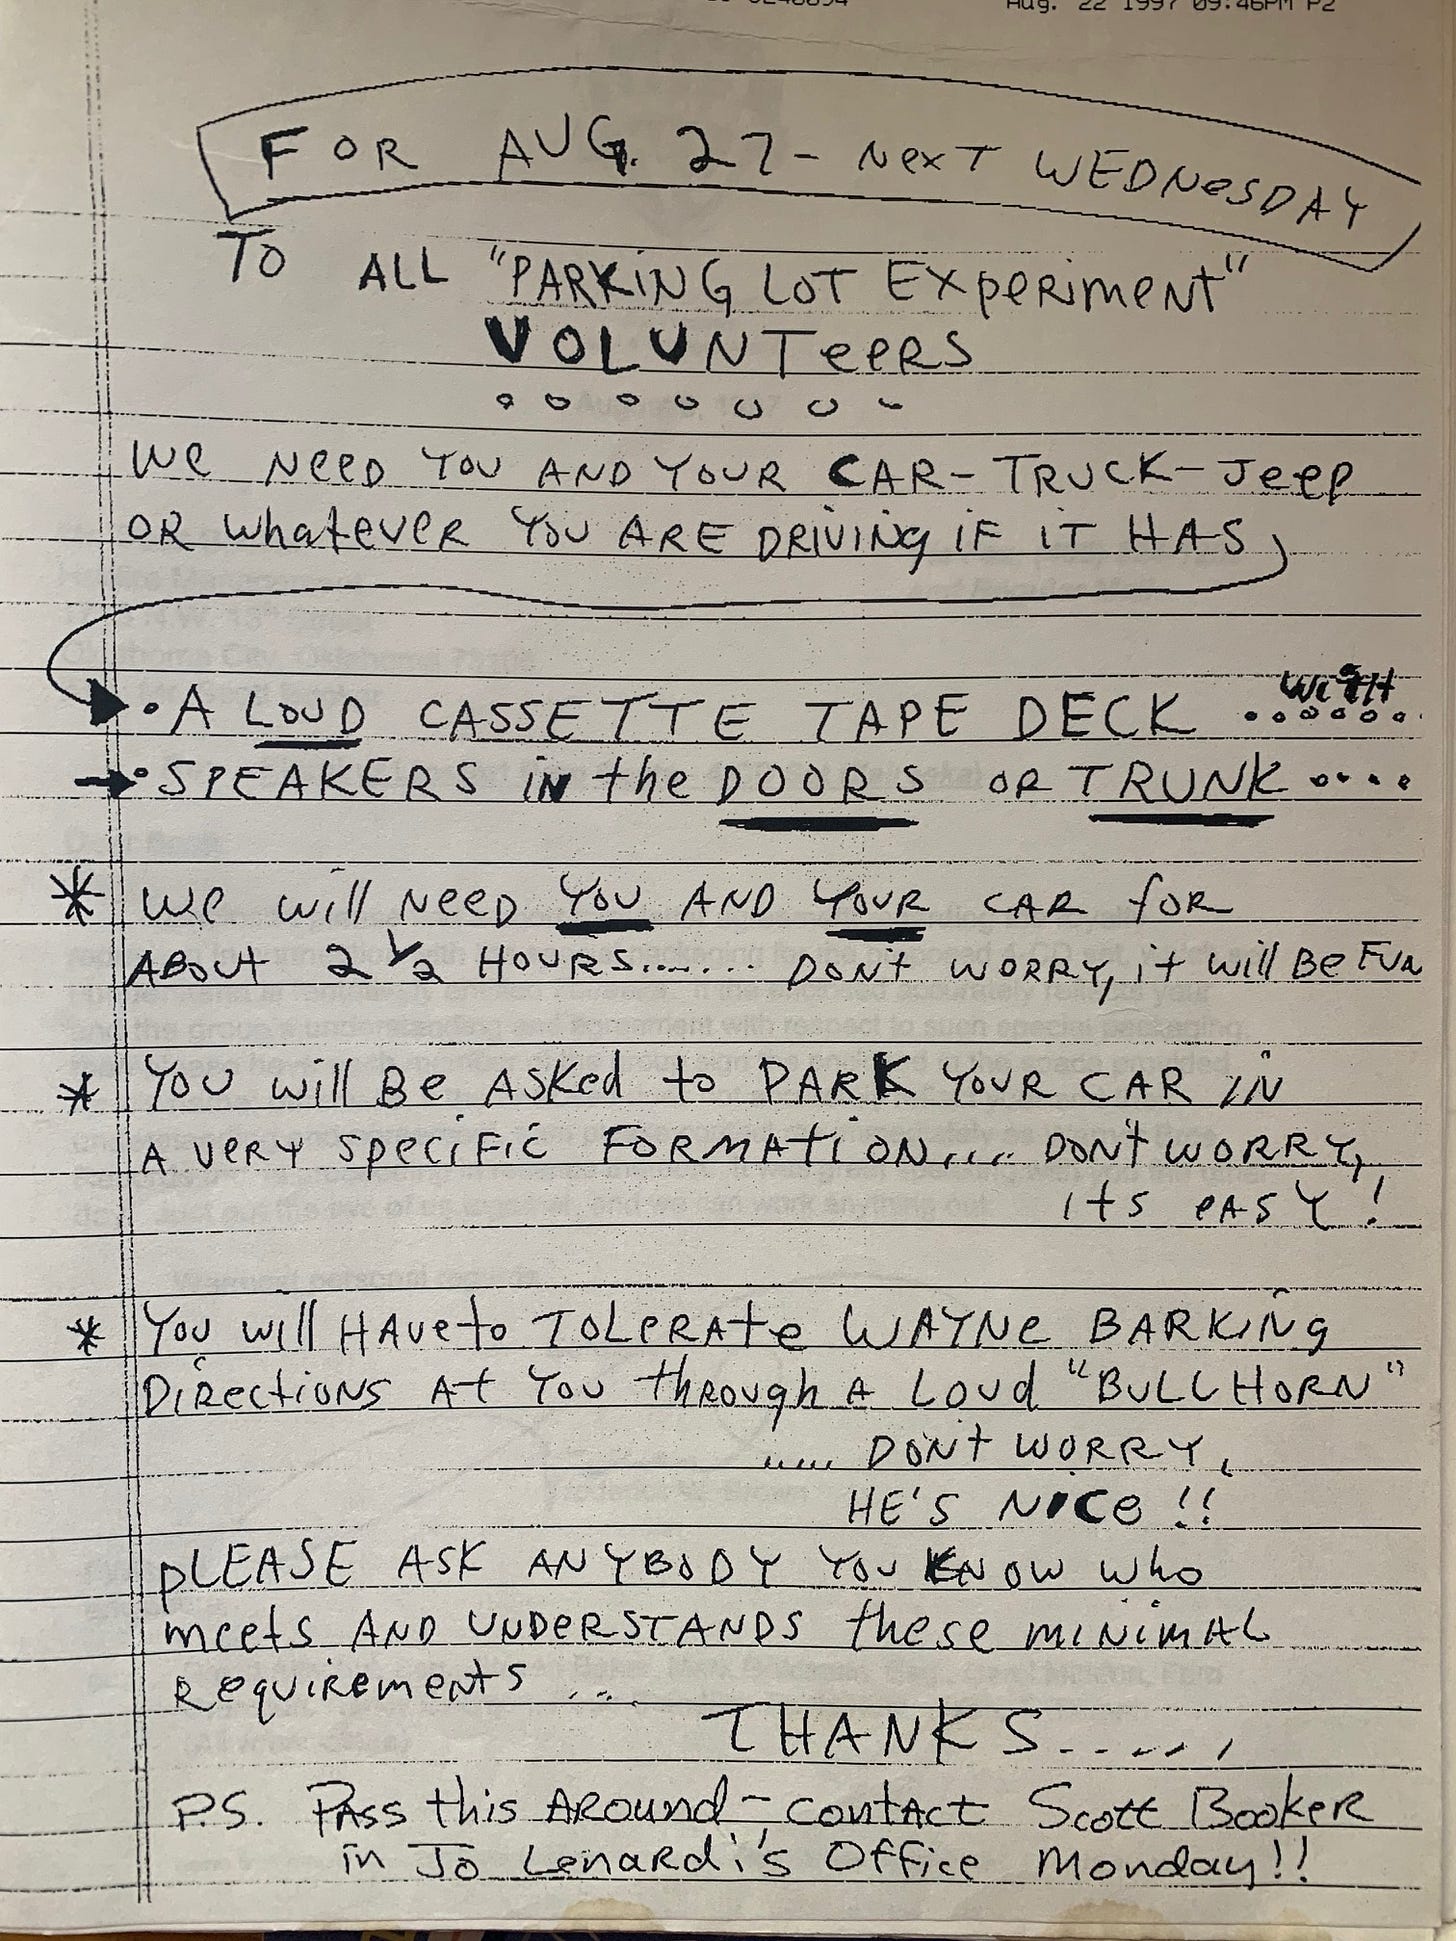 Aug. 22 1997 09:46PM P2
FOR AUG. 27 - NexT WEDNeSDAY
TO ALL "PARKiNG LOT Experiment"
VOLUNTeeRS
We Need YOU AND YOUR CAR-TRUCK-Jeep
OR whatever YOU ARE DRIVING IF IT HAS
• A LOUD CASSETTE TAPE DECK ...... WITH
• SPEAKERS iN the DOORS OR TRUNK ....
* We will NEED YOU AND YOUR CAR for
ABOUT 2 1/2 HOURS....... DONT WORRY, it will Be FUN
* YOU will Be ASKed to PARK YOUR CAR IN
A VERY SpeciFic FORMATION.... DON'T WORRY,
iTS eASY!
* YOU will HAVE to TOLeRATe WAYNe BARKiNg
DiRectiONS AT YOU thROUgh A LOUD "BULLHORN"
..... DON'T WORRY,
HE'S NICe!!
pLEASE ASK ANYBODY YOU KNOW who
meets AND UNDeRSTANDS these miNimAL
Requirements ...
THANKS......
P.S. PAss this AROUND - contAct Scott BookeR
in Jo LenaRdi's Office Monday!!